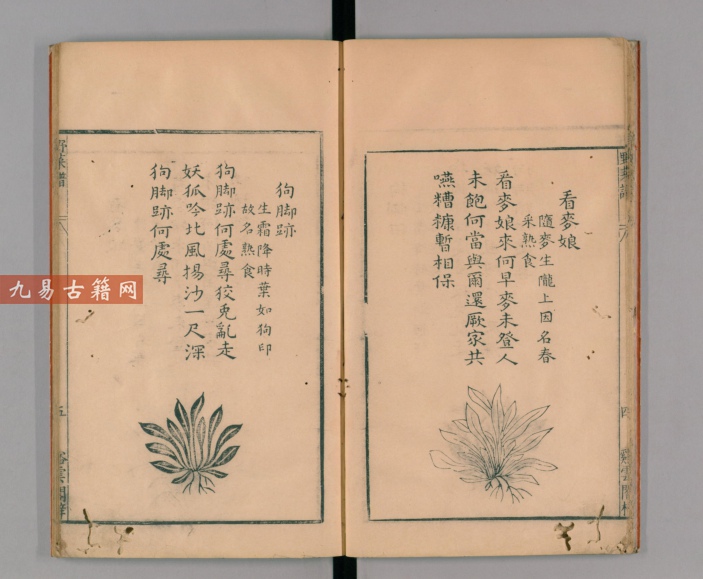 看麥娘
隨麥生隴上因名春
采熟食
看麥娘來何早麥未登人
未飽何當與爾還厥家共
嚥糟糠暫相保
四
狗脚跡
生霜降時葉如狗印
故名熟食
狗脚跡何處尋狡兔亂走
妖狐吟北風揚沙一尺深
狗脚跡何處尋
野菜譜
五
九易古籍网